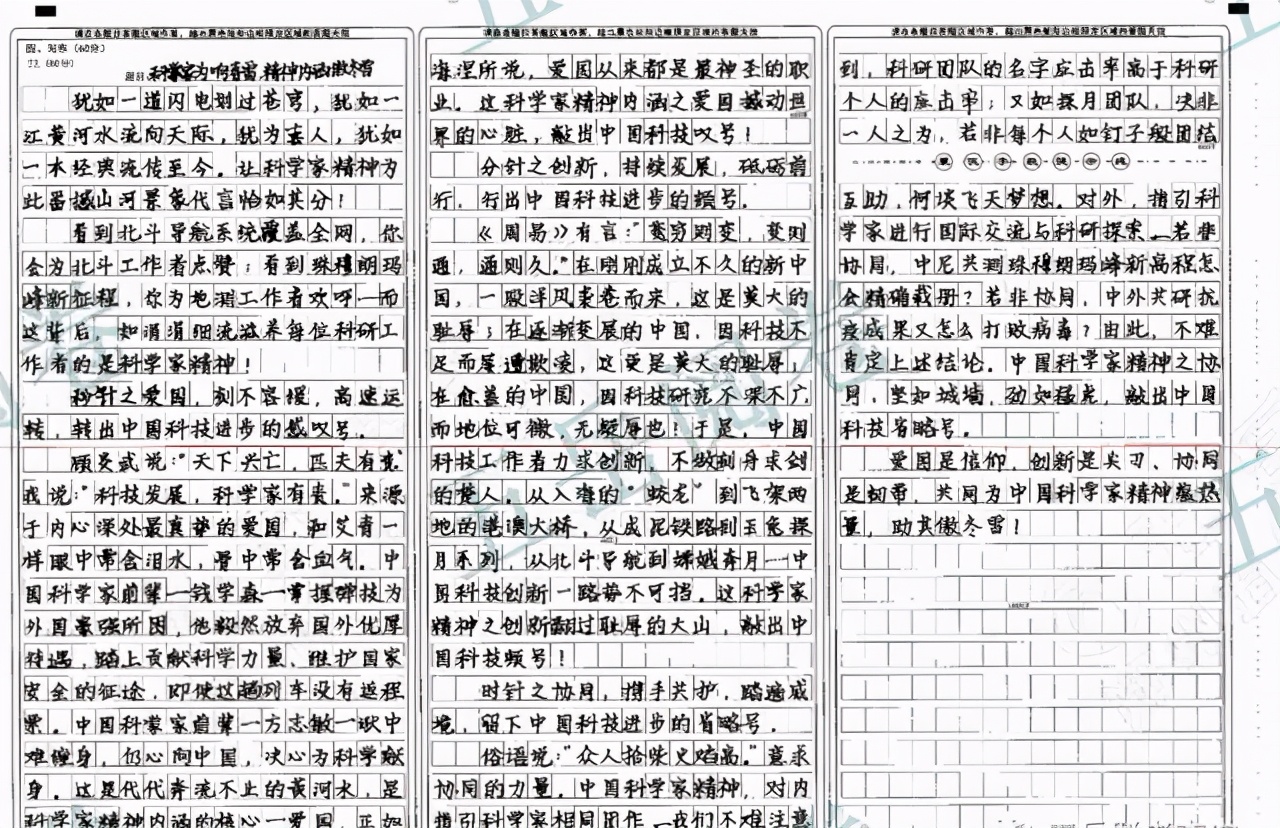 四、写作（60分）
科学家为响春雷 精神内涵傲冬雪
犹如一道闪电划过苍穹，犹如一
江黄河水流向天际，犹为春人，犹如
一本经典流传至今。让科学家精神为
此番撼山河景象代言恰如其分！
看到北斗导航系统覆盖全网，你
会为北斗工作者点赞；看到珠穆朗玛
峰新征程，你为地测工作者欢呼—而
这背后，如涓涓细流滋养每位科研工
作者的是科学家精神！
秒针之爱国，刻不容缓，高速运
转，转出中国科技进步的感叹号。
顾炎武说：“天下兴亡，匹夫有责”
我说：“科技发展，科学家有责”。来源
于内心深处最真挚的爱国，和艾青一
样眼中常含泪水，骨中常含血气。中
国科学家前辈—钱学森—掌握弹技为
外国豪强所困，他毅然放弃国外优厚
待遇，踏上贡献科学力量、维护国家
安全的征途，即使这趟列车没有返程
票。中国科学家前辈—方志敏—狱中
难缠身，仍心向中国，决心为科学献
身。这是代代奔流不止的黄河水，是
科学家精神内涵的核心—爱国，正如
海涅所说，爱国从来都是最神圣的职
业。这科学家精神内涵之爱国撼动世
界的心脏，敲出中国科技叹号！
分针之创新，持续发展，砥砺前
行，行出中国科技进步的频号。
《周易》有言：“变穷则变，变则
通，通则久。”在刚刚成立不久的新中
国，一股洋风袭卷而来，这是莫大的
耻辱；在逐渐发展的中国，因科技不
足而屡遭欺凌，这更是莫大的耻辱；
在愈盖的中国，因科技研究不深不广
而地位可微，无疑辱也！于是，中国
科技工作者力求创新，不做刻舟求剑
的楚人。从入海的“蛟龙”到飞架两
地的港澳大桥，从成昆铁路到玉兔探
月系列，从北斗导航到嫦娥奔月—中
国科技创新一路势不可挡。这科学家
精神之创新翻过耻辱的大山，敲出中
国科技频号！
时针之协同，携手共护，踏遍成
境，留下中国科技进步的省略号。
俗语说：“众人拾柴火焰高。”意求
协同的力量。中国科学家精神，对内
指引科学家相同团作，我们不难注意
到，科研团队的名字应击率高于科研
个人的应击率；又如探月团队，决非
一人之为，若非每个人如钉子般团结
互助，何谈飞天梦想。对外，指引科
学家进行国际交流与科研探索—若非
协同，中尼共测珠穆朗玛峰新高程怎
会精确载册？若非协同，中外共研抗
疫成果又怎么打败病毒？由此，不难
肯定上述结论。中国科学家精神之协
同，坚如城墙，劲如猛虎，敲出中国
科技省略号。
爱国是信仰，创新是尖刀、协同
是韧带，共同为中国科学家精神蕴热
量，助其傲冬雪！